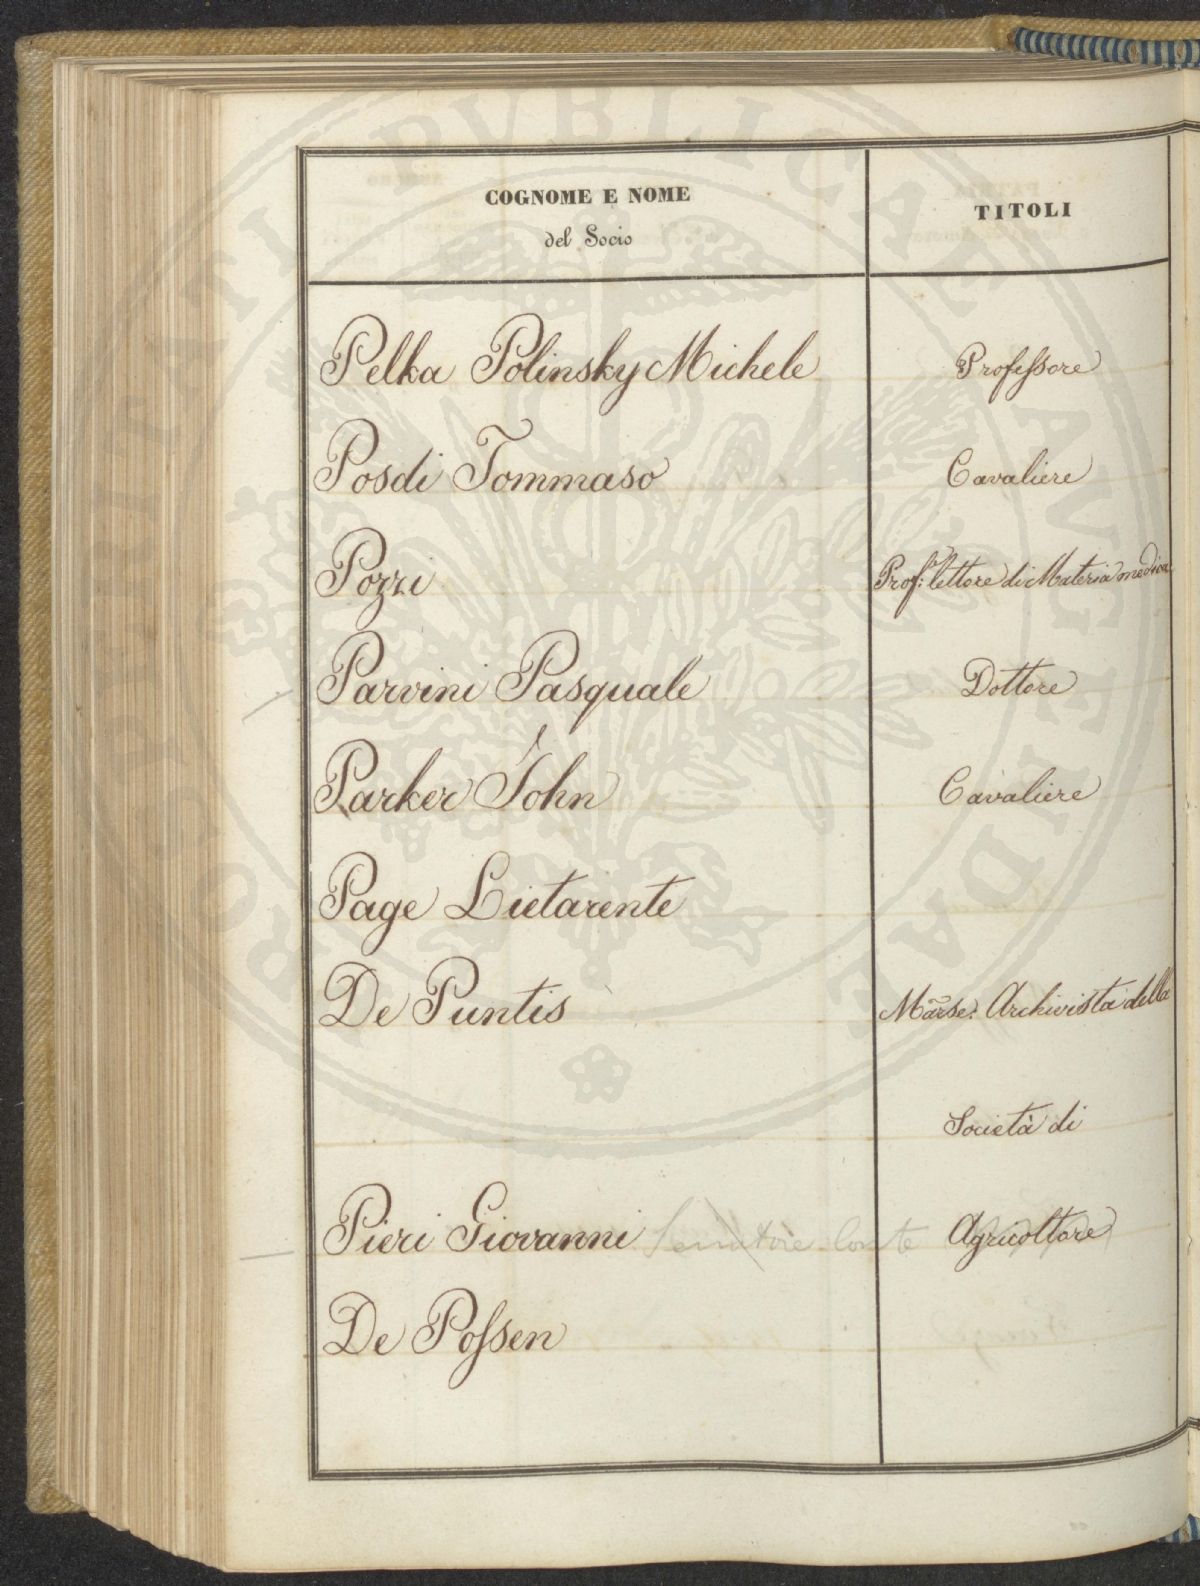 COGNOME E NOME
del Socio
TITOLI
Pelka Polinsky Michele Professore
Posdi Tommaso Cavaliere
Pozzi Prof: lettore di Materia medica
Parvini Pasquale Dottore
Parker John Cavaliere
Page Lietarente
De Puntis Marse: Archivista della
Società di
Pieri Giovanni Senatore Conte Agricoltore
De Possen